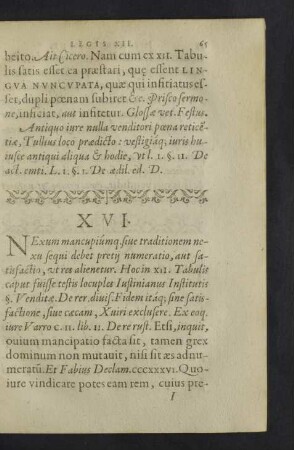 LEGIS XII. 65
beito. Ait Cicero. Nam cum ex XII. Tabu-
lis satis esset ea præstari, quę essent LIN-
GVA NVNCVPATA, quæ qui infitiatus es-
ser, dupli pœnam subiret &c. Prisco sermo-
ne, inficiat, aut infitetur. Glossæ vet. Festus.
Antiquo iure nulla venditori pœna reticē-
tiæ, Tullius loco prædicto: vestigiáq; iuris hu-
iusce antiqui aliqua & hodie, vt l. 1. §. 11. De
act. emti. L. 1. §. 1. De ædil. ed. D.
XVI.
NExum mancupiúmq. siue traditionem ne-
xu sequi debet pretij numeratio, aut sa-
tisfactio, vt res alienetur. Hoc in XII. Tabulis
caput fuisse testis locuples Iustinianus Institutis
§. Venditæ. De rer. diuis. Fidem itáq; sine satis-
factione, siue cæcam, Xuiri exclusere. Ex eoq,
iure Varro c. II. lib. II. De re rust. Etsi, inquit,
ouium mancipatio facta sit, tamen grex
dominum non mutauit, nisi sit æs adnu-
meratū. Et Fabius Declam. CCCXXXVI. Quo-
iure vindicare potes eam rem, cuius pre-
I